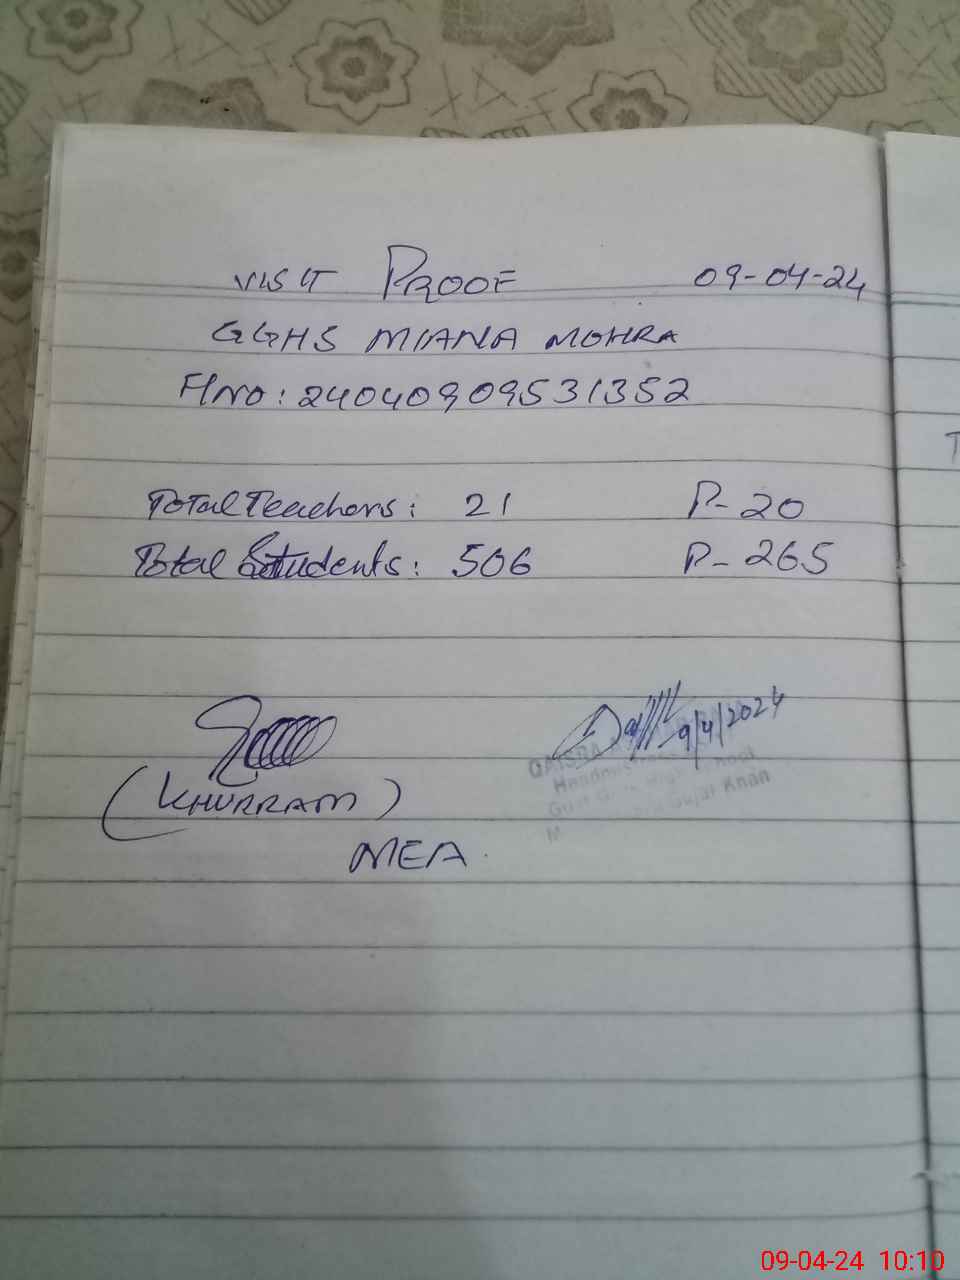 VISIT PROOF 09-04-24
GGHS MIANA MOHRA
FI NO: 24040909531352
Total Teachers: 21 P- 20
Total Students: 506 P- 265
9/4/2024
(KHURRAM)
MEA
QAISRA
School
Gujar Khan
09-04-24 10:10